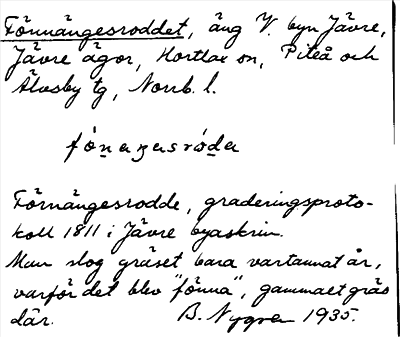 Fönnängesroddet, äng V. byn Jävre,
Jävre ägor, Hortlax sn, Piteå och
Älvsby tg, Norrb. l.
Förnängesrodde, graderingsproto-
koll 1811 i Jävre byaskrin.
Man slog gräset bara vartannat år,
varför det blev "fönna", gammalt gräs
där. B. Nygren 1935.